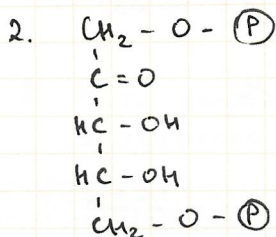 2. CH₂ - O - Ⓟ
C = O
HC - OH
HC - OH
CH₂ - O - Ⓟ